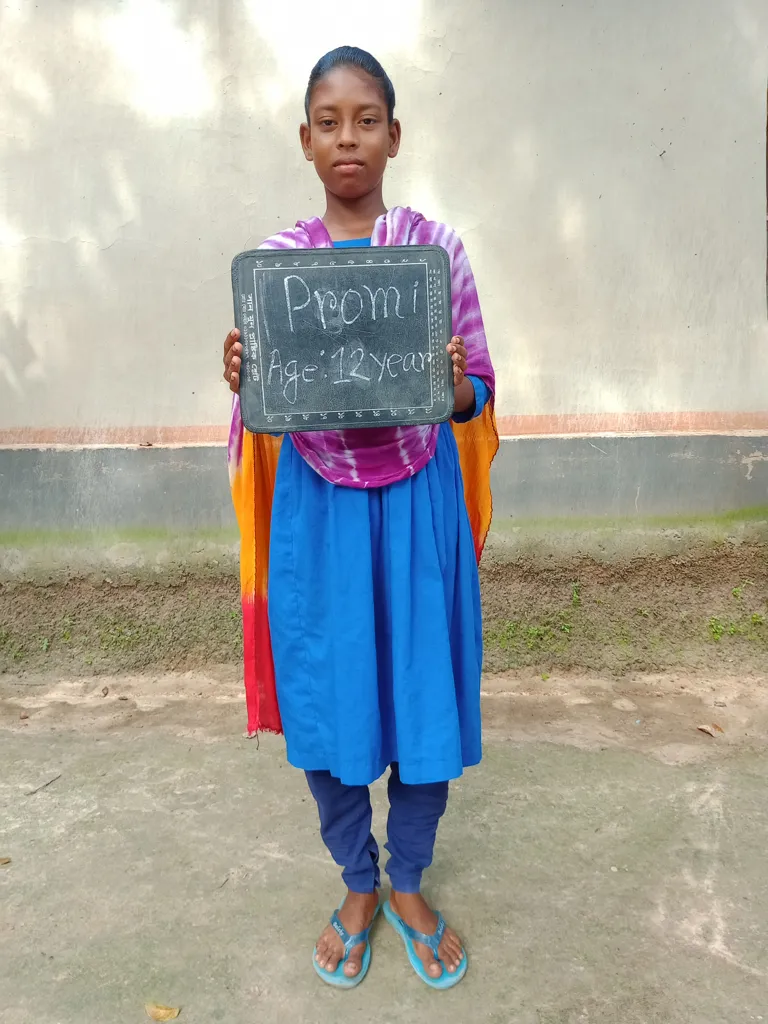 Promi
Age: 12 year